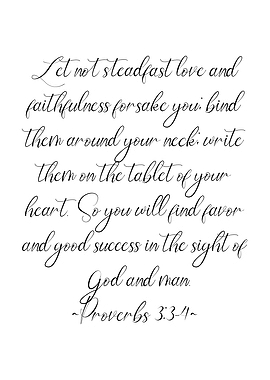 Let not steadfast love and
faithfulness forsake you; bind
them around your neck; write
them on the tablet of your
heart. So you will find favor
and good success in the sight of
God and man.
~Proverbs 3:3-4~